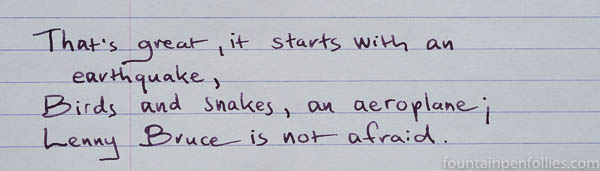 That's great, it starts with an
earthquake,
Birds and snakes, an aeroplane;
Lenny Bruce is not afraid.
fountainpenfollies.com